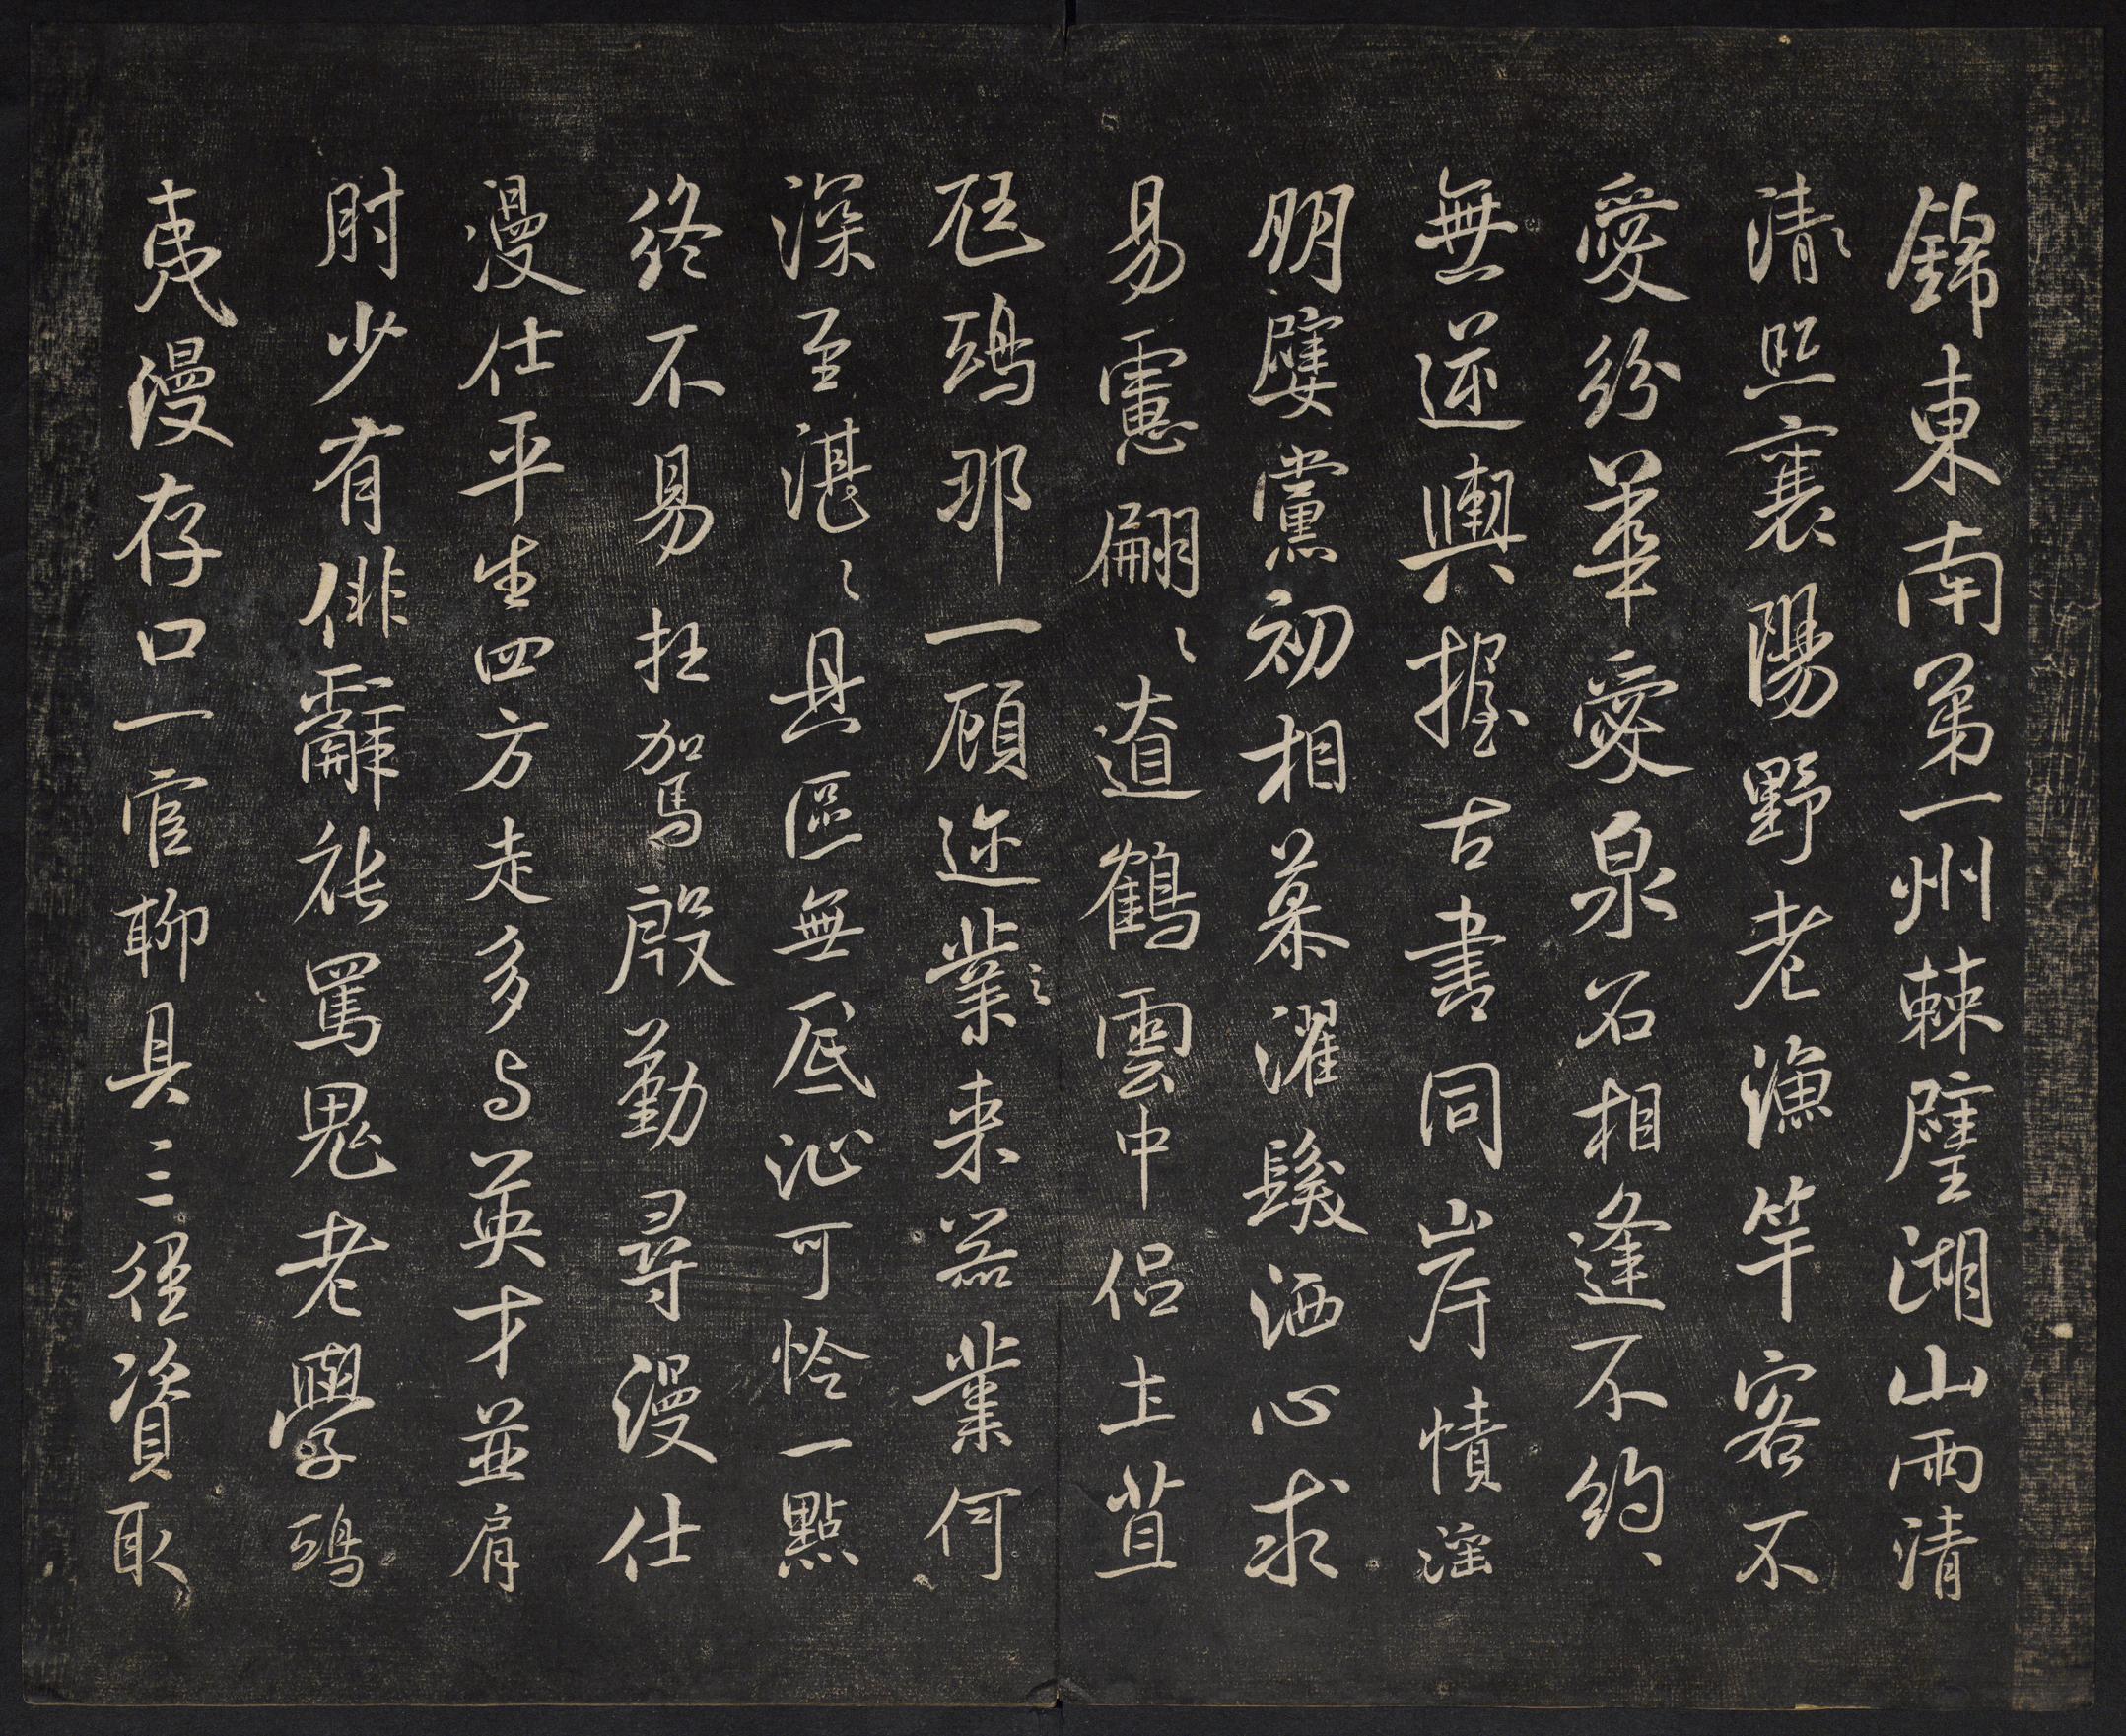 錦東南第一州棘璧湖山兩清
清照襄陽野老漁竿客不
愛紛華愛泉石相逢不約
無逆輿握古書同岸幘淫
朋嬖黨初相慕濯髮洒心求
易慮翩〻遼鶴雲中侶土苴
尫鴟那一顧迩業来器業何
深至湛〻具區無底沁可怜一點
終不易枉駕殷勤尋漫仕
漫仕平生四方走多与英才並肩
肘少有俳辭能罵鬼老學鴟
夷漫存口一官聊具三徑資取